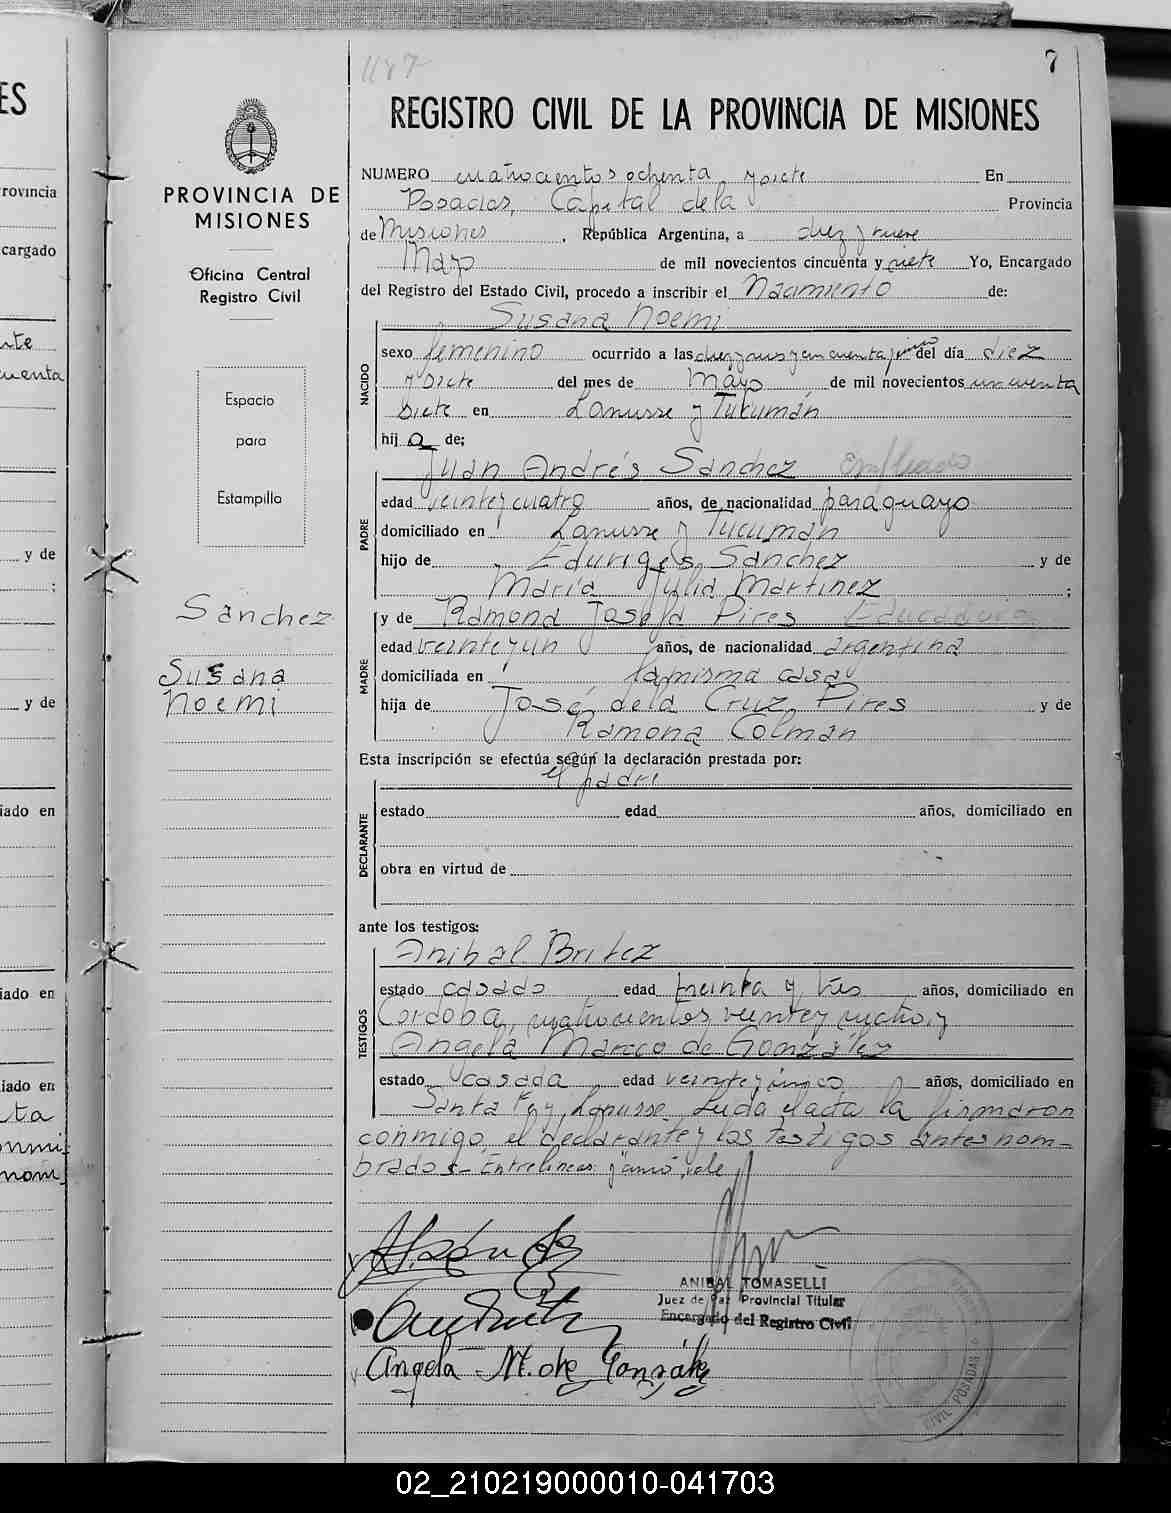 7
REGISTRO CIVIL DE LA PROVINCIA DE MISIONES
PROVINCIA DE
MISIONES
Oficina Central
Registro Civil
Espacio
para
Estampilla
Sánchez
Susana
Noemi
NUMERO cuatrocientos ochenta y siete En
Posadas, Capital de la Provincia
de Misiones, República Argentina, a diez y nueve
Mayo de mil novecientos cincuenta y siete Yo, Encargado
del Registro del Estado Civil, procedo a inscribir el Nacimiento de:
Susana Noemi
NACIDO
sexo femenino ocurrido a las del día diez
y siete del mes de Mayo de mil novecientos cincuenta
siete en Lanusse y Tucumán
hij a de;
PADRE
Juan Andrés Sánchez Empleado
edad veinte y cuatro años, de nacionalidad paraguayo
domiciliado en Lanusse y Tucumán
hijo de Eduriges Sánchez y de
María Julia Martinez ;
MADRE
y de Ramona Josefa Pires
edad veinte y un años, de nacionalidad argentina
domiciliada en la misma casa
hija de José de la Cruz Pires y de
Ramona Colman
Esta inscripción se efectúa según la declaración prestada por:
el padre
DECLARANTE
estado edad años, domiciliado en
obra en virtud de
ante los testigos:
TESTIGOS
Anibal Britez
estado casado edad treinta y tres años, domiciliado en
Córdoba, cuatrocientos veinte y cuatro, y
Angela Mareco de González
estado casada edad veinte y cinco años, domiciliado en
Santa Fe y Lanusse. Leida el acta la firmaron
conmigo, el declarante y los testigos antes nom-
brados.- Entrelineas: vale
ANIBAL TOMASELLI
Juez de Paz Provincial Titular
Encargado del Registro Civil
Angela M. de González
CIVIL POSADAS
ES
rovincia
cargado
cuenta
y de
;
y de
iado en
iado en
iado en
ta
nom
02_210219000010-041703